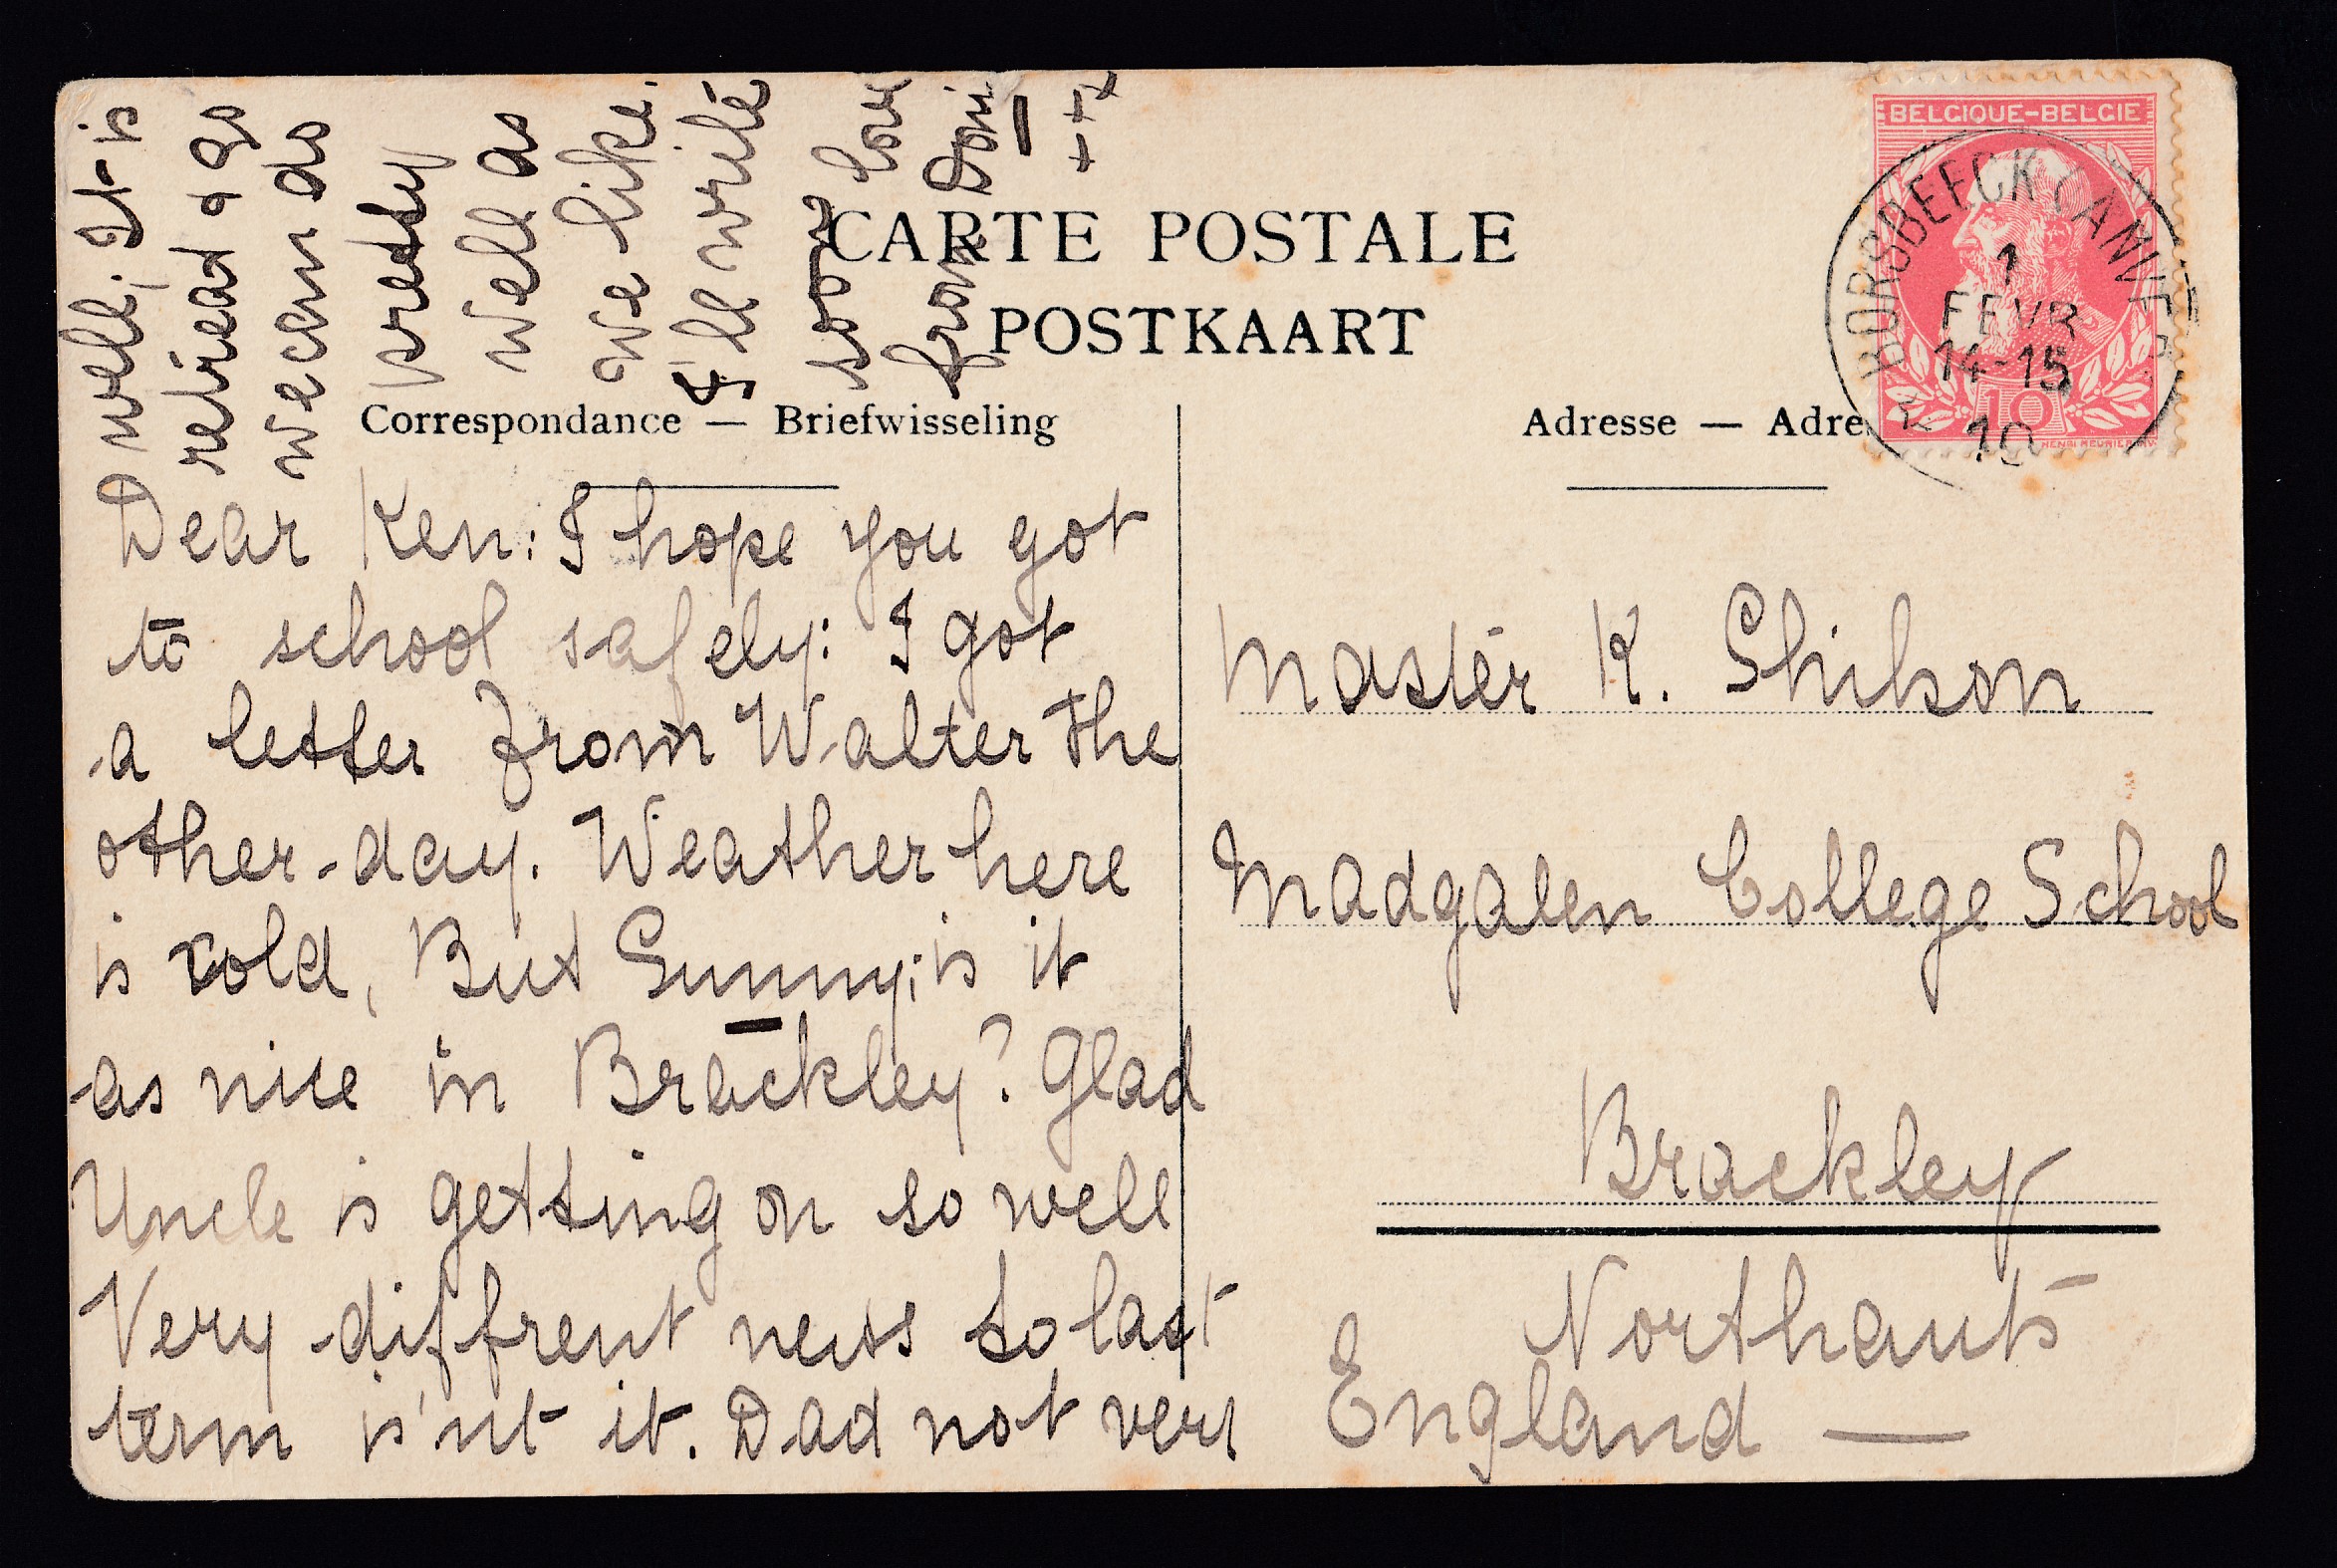 CARTE POSTALE
POSTKAART
Correspondance — Briefwisseling
Adresse — Adre
BELGIQUE-BELGIE
10
HENRI MEUNIER INV.
BORSBEECK (ANVERS)
1
FEVR
14-15
10
Dear Ken: I hope you got
to school safely: I got
a letter from Walter the
other-day. Weather here
is cold, But Sunny; is it
as nice in Brackley? Glad
Uncle is getting on so well
Very diffrent news to last
term is'nt it. Dad not very
well; It is
retiread & so
we can do
pretty
well as
we like.
I'll write
soon love
from Dori
+++
Master K. Shilson
Madgalen College School
Brackley
Northants
England —